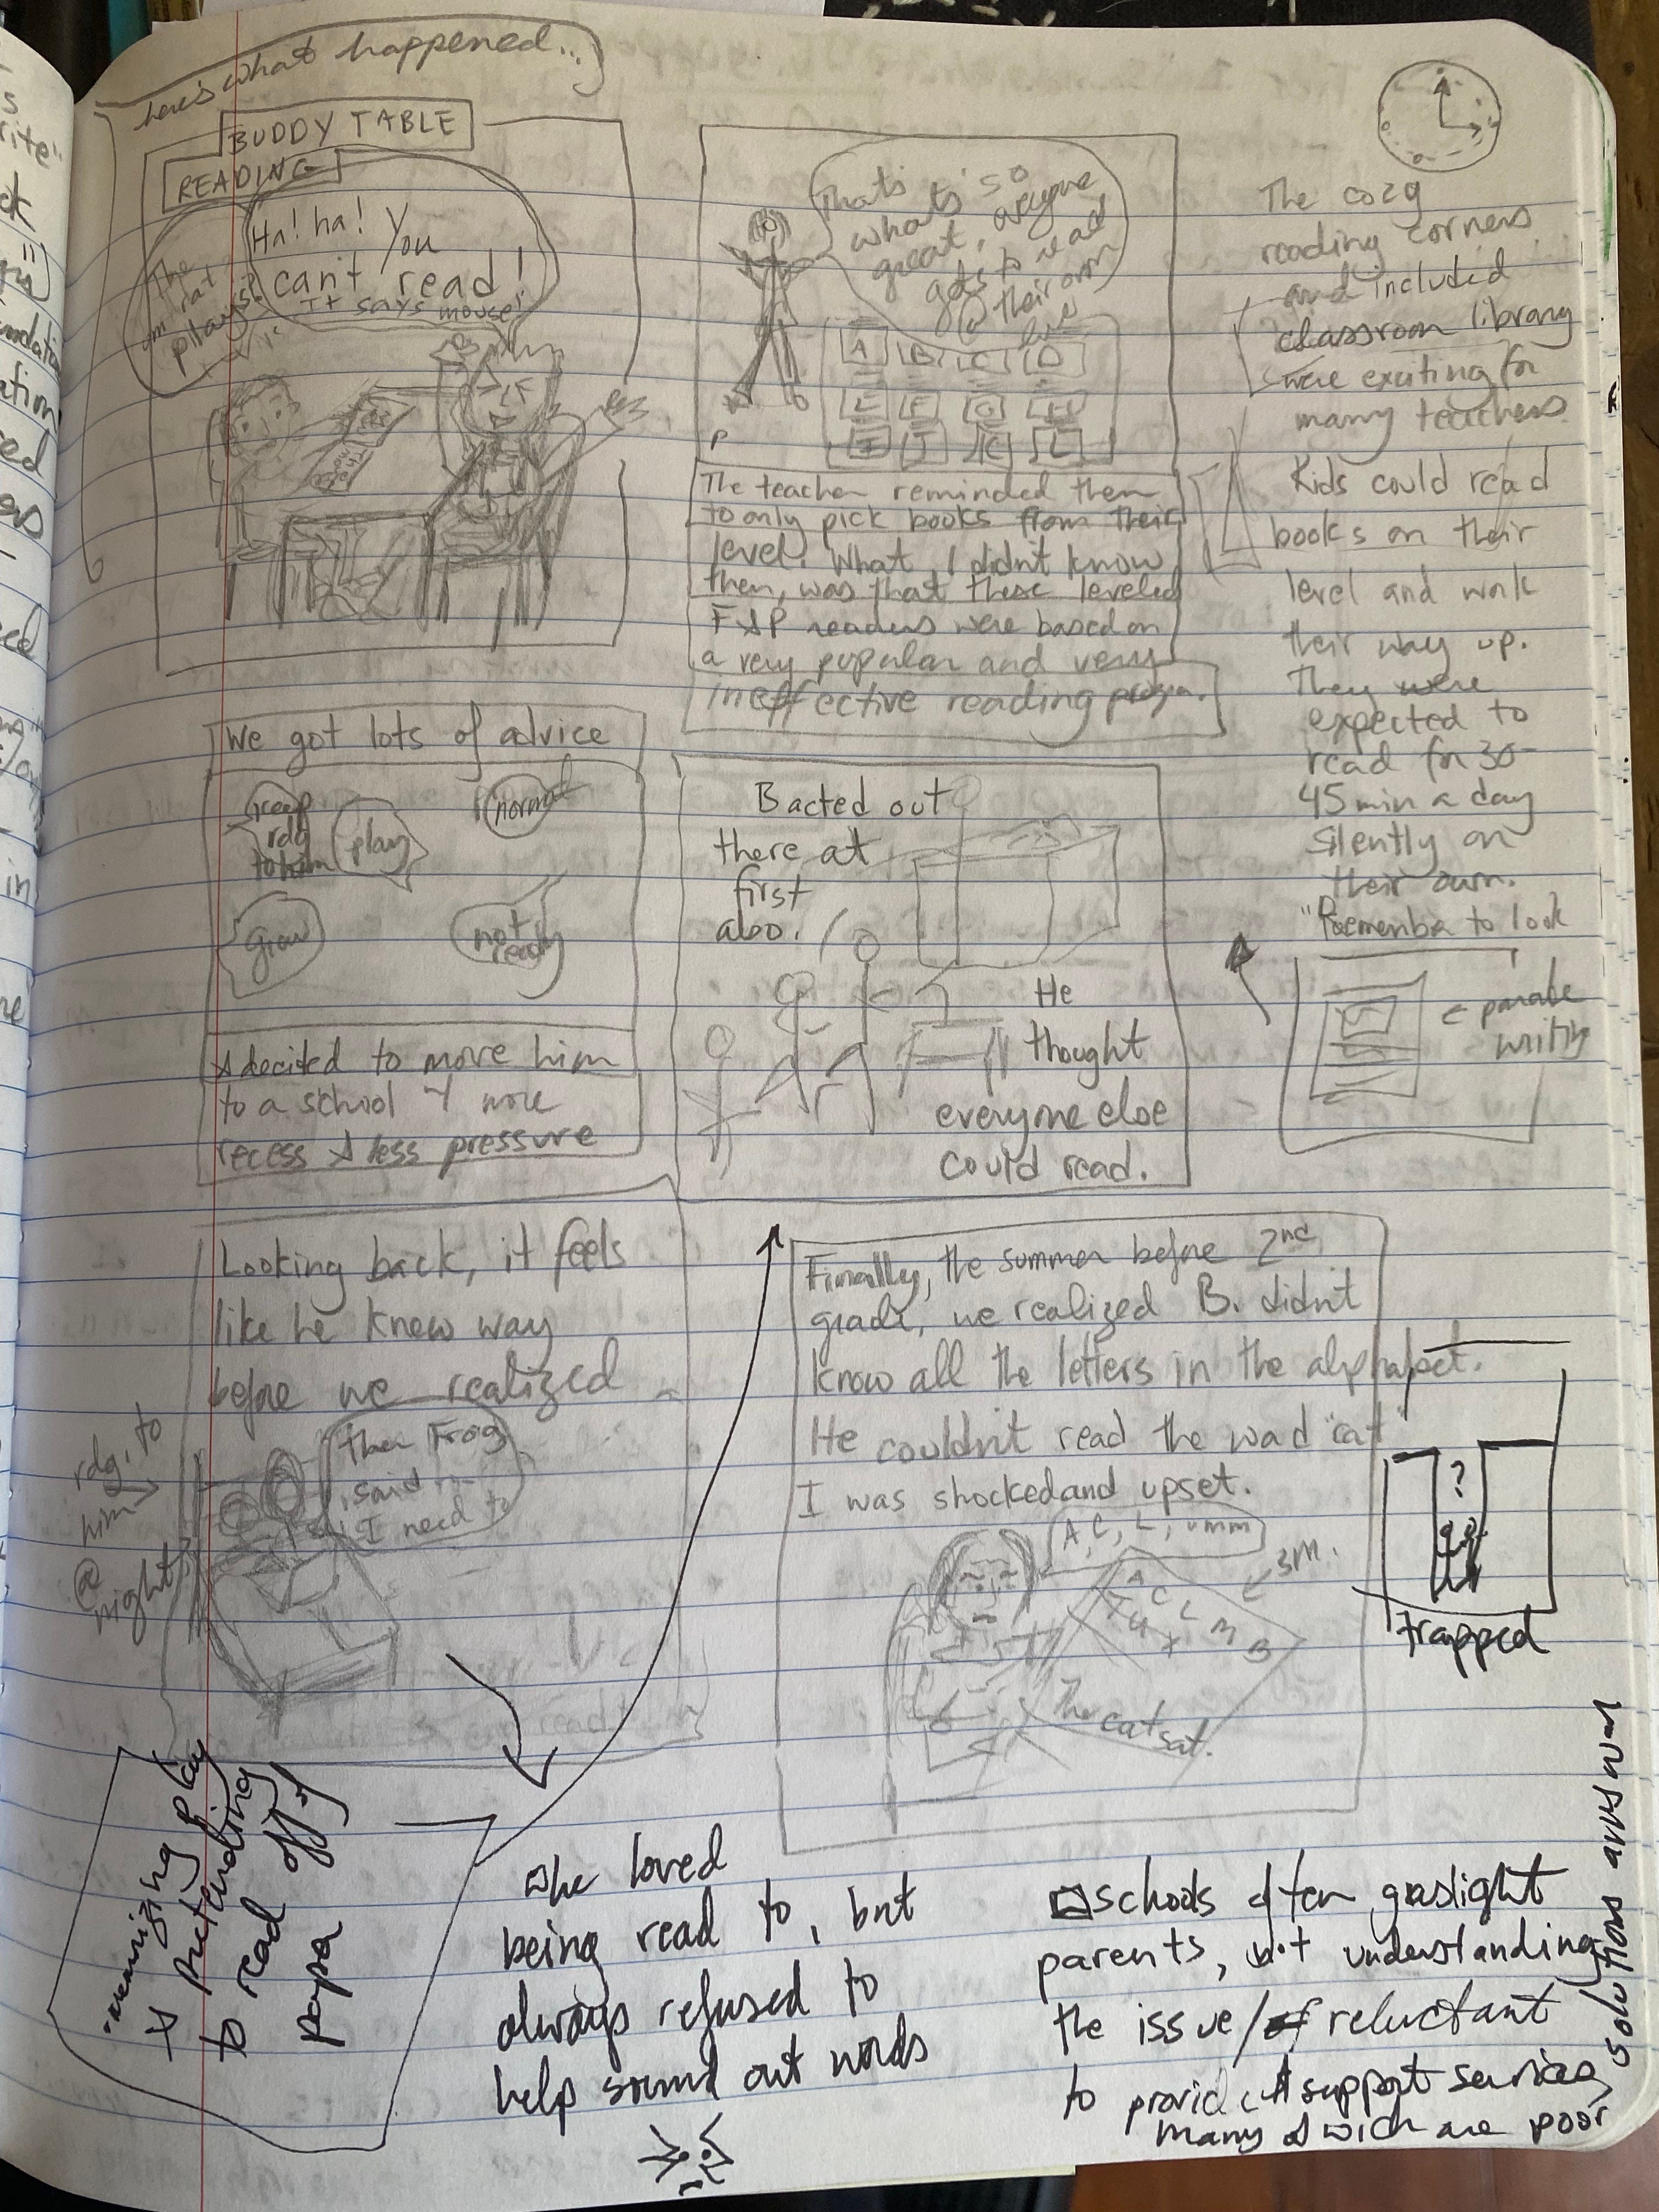 here's what happened...
BUDDY TABLE
READING
The
rat
plays?
Ha! ha! You
can't read!
It says mouse!
That's
what's so
great, everyone
gets to read
@ their own
A B C D
E F G H
I J K L
P
The teacher reminded them
to only pick books from their
level. What I didn't know
then, was that these leveled
F&P readers were based on
a very popular and very
ineffective reading
The cozy
reading corners
and included
classroom library
were exciting for
many teachers.
Kids could read
books on their
level and work
their way up.
They were
expected to
read for 30-
45 min a day
silently on
their own.
"Remember to look
writing
We got lots of advice
keep
rdg
to him
play
normal
grow
not
ready
& decided to move him
to a school
recess & less pressure
B acted out
there at
first
also.
He
thought
everyone else
could read.
Looking back, it feels
like he knew way
before we realized
rdg. to
him
@
night
then Frog
said
I need to
Finally, the summer before 2nd
grade, we realized B. didn't
know all the letters in the alphabet.
He couldn't read the word "cat"
I was shocked and upset.
A, C, L, umm
A C L M B
The cat sat.
?
trapped
play
& pretending
to read off of
he loved
being read to, but
always refused to
help sound out words
schools often gaslight
parents, not understanding
the issue/ reluctant
to provide support services,
many of wich are poor
solutions anyway